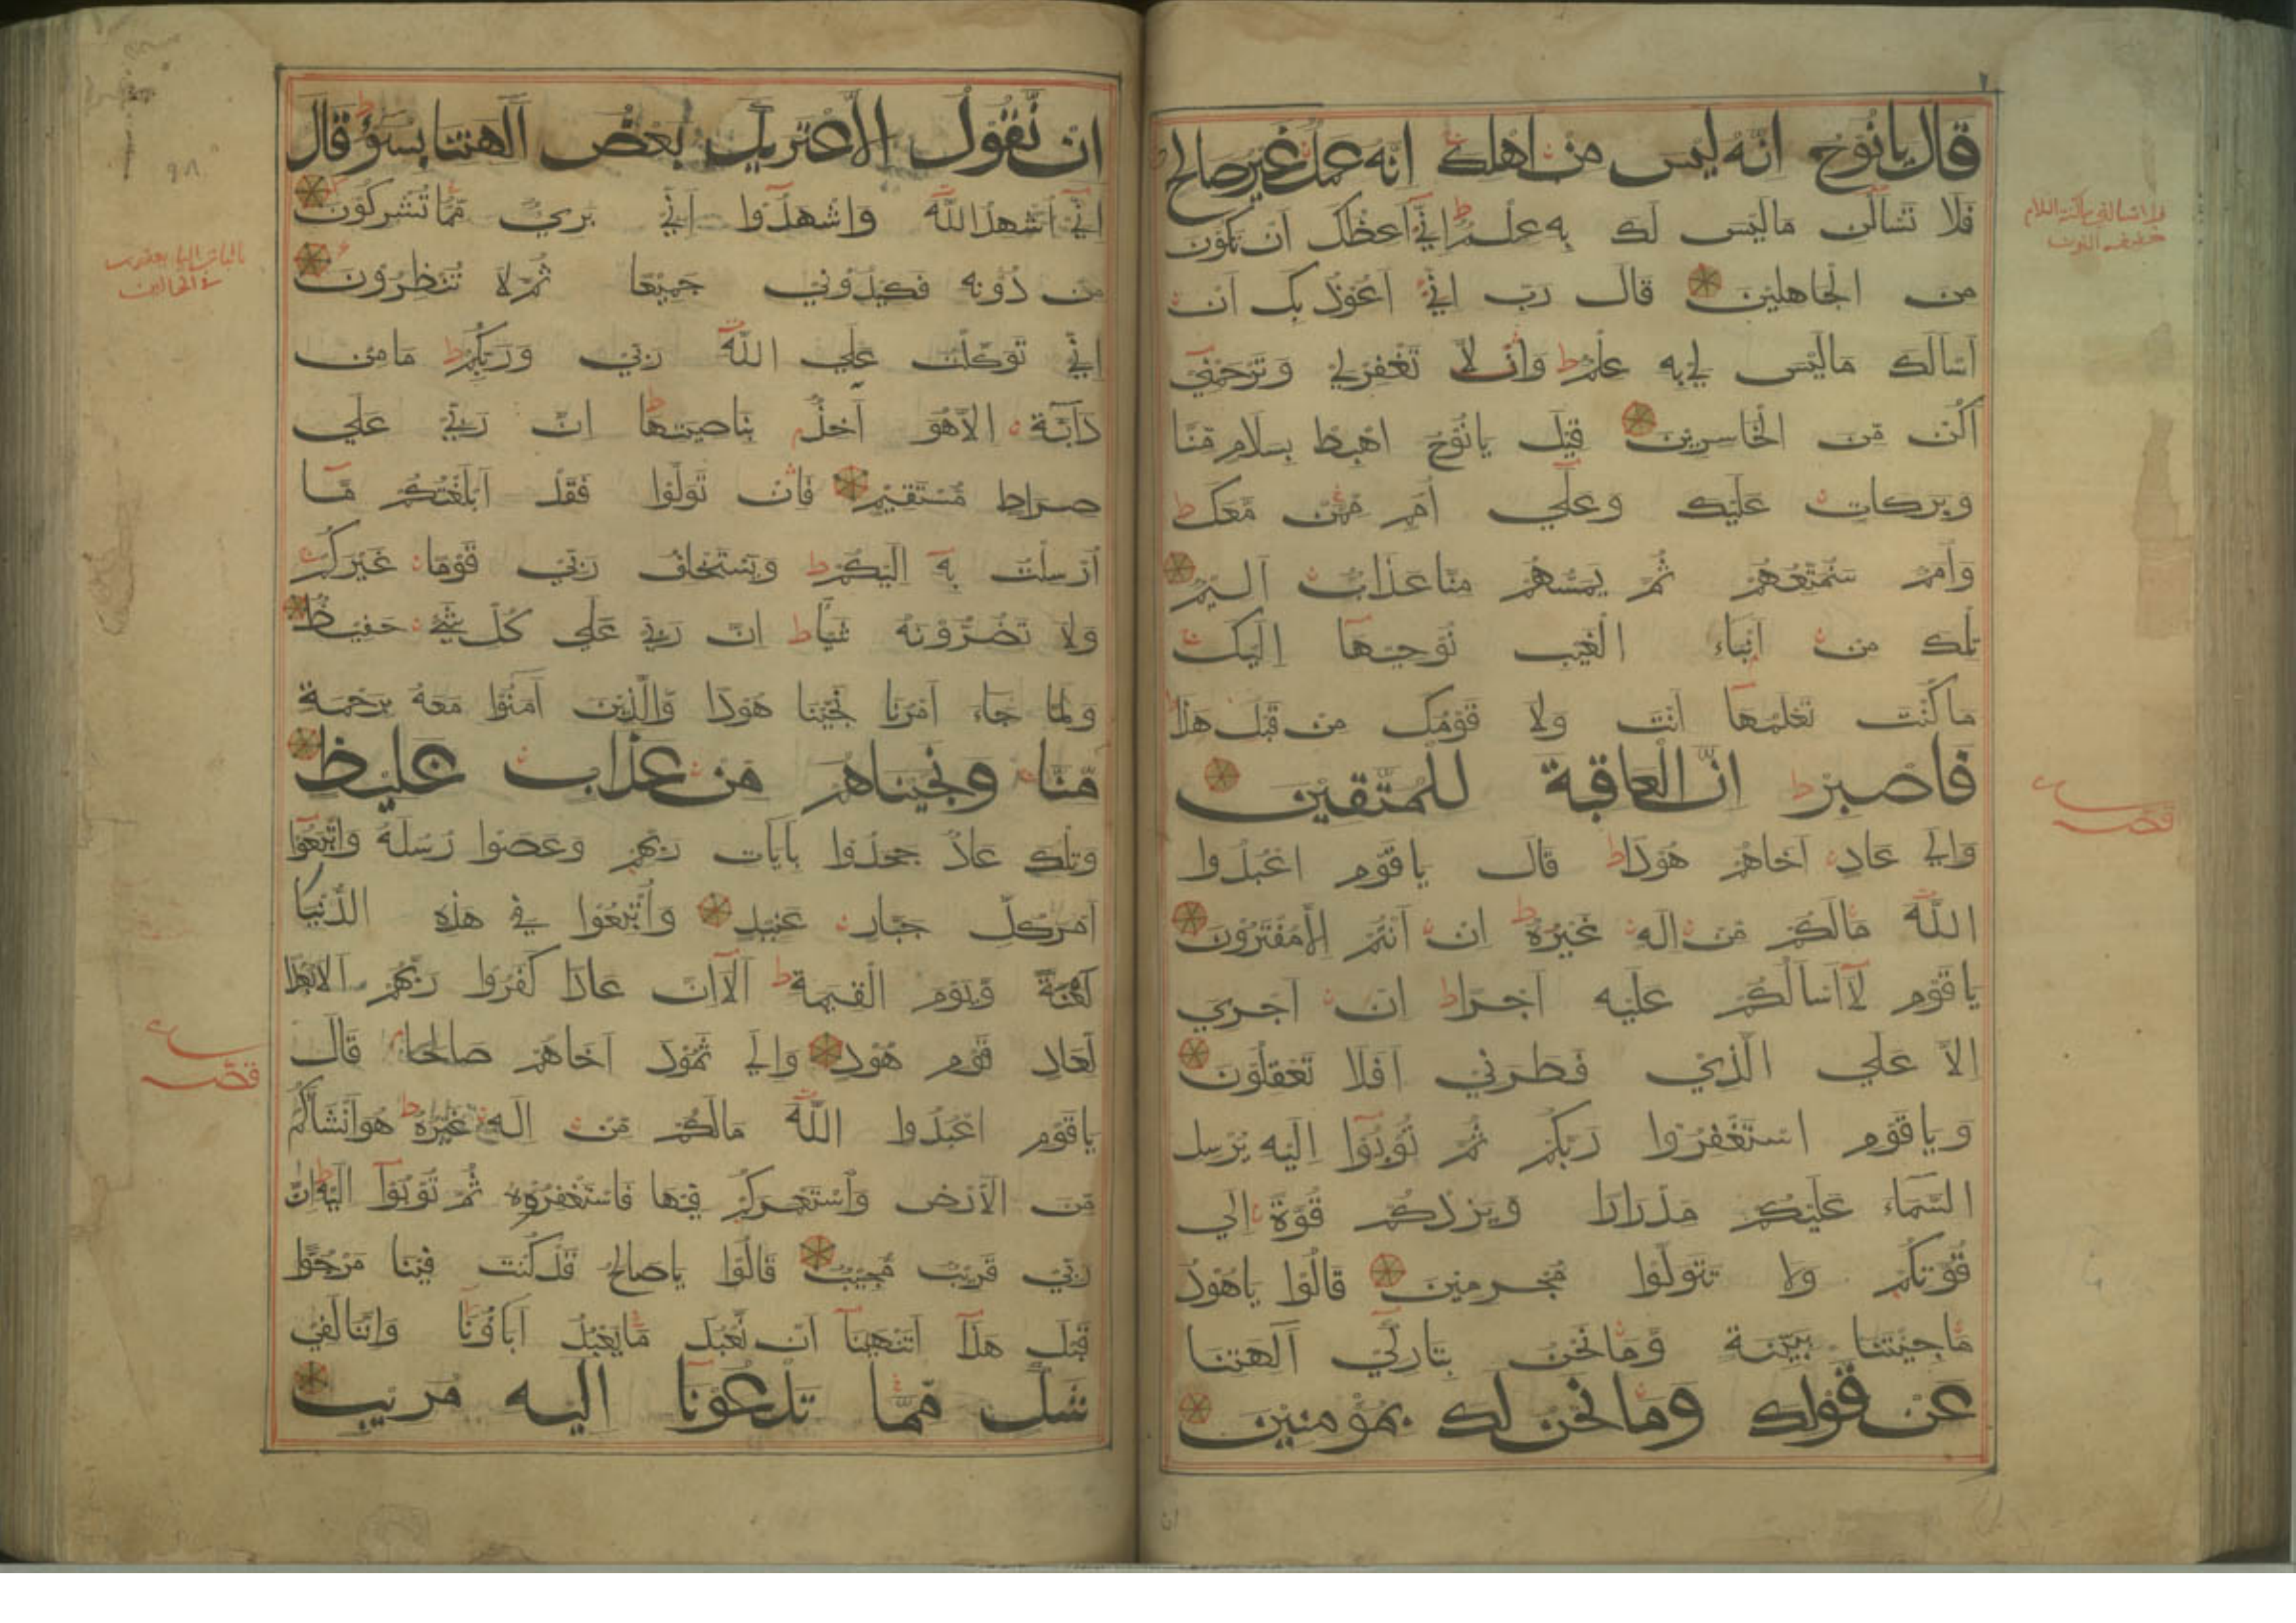 قال يا نُوْحُ انّه ليس من اهلك انه عمل غير صالح
فلا تسألن ما ليس لك به علم اني أعظك ان تكون
من الجاهلين قال رب اني أعوذ بك ان
اسالك ما ليس لي به علم وان لا تغفر لي وترحمني
اكن من الخاسرين قيل يا نوح اهبط بسلام منا
وبركات عليك وعلي أمم ممن معك
وأمم سنمتعهم ثم يمسهم منا عذاب اليم
تلك من انباء الغيب نوحيها اليك
ما كنت تعلمها انت ولا قومك من قبل هذا
فاصبر انّ العاقبة للمتّقين
والي عاد اخاهم هودا قال يا قوم اعبدوا
اللّه مالكم من اله غيره ان انتم الا مفترون
يا قوم لا اسالكم عليه اجرا ان اجري
الا علي الذي فطرني افلا تعقلون
ويا قوم استغفروا ربكم ثم توبوا اليه يرسل
السماء عليكم مدرارا ويزدكم قوة الي
قوتكم ولا تتولوا مجرمين قالوا يا هود
ما جئتنا ببينة وما نحن بتاركي آلهتنا
عن قولك وما نحن لك بمؤمنين
ان
ان نّقول الّا اعتريك بعض آلهتنا بسوء قال
اني اشهد اللّه واشهدوا اني بريء مما تشركون
من دونه فكيدوني جميعا ثم لا تنظرون
اني توكلت علي اللّه ربي وربكم ما من
دابة الا هو آخذ بناصيتها ان ربي علي
صراط مستقيم فان تولوا فقد ابلغتكم ما
ارسلت به اليكم ويستخلف ربي قوما غيركم
ولا تضرونه شيأ ان ربي علي كل شيء حفيظ
ولما جاء امرنا نجينا هودا والذين آمنوا معه برحمة
منا ونجيناهم من عذاب غليظ
وتلك عاد جحدوا بآيات ربهم وعصوا رسله واتبعوا
امر كل جبار عنيد وأتبعوا في هذه الدنيا
لعنة ويوم القيمة الا ان عادا كفروا ربهم الا بعدا
لعاد قوم هود والي ثمود اخاهم صالحا قال
يا قوم اعبدوا اللّه مالكم من اله غيره هو انشأكم
من الارض واستعمركم فيها فاستغفروه ثم توبوا اليه ان
ربي قريب مجيب قالوا يا صالح قد كنت فينا مرجوا
قبل هذا اتنهينا ان نعبد ما يعبد آباؤنا واننا لفي
شك مما تدعونا اليه مريب
قصہ
قصہ
٩٨